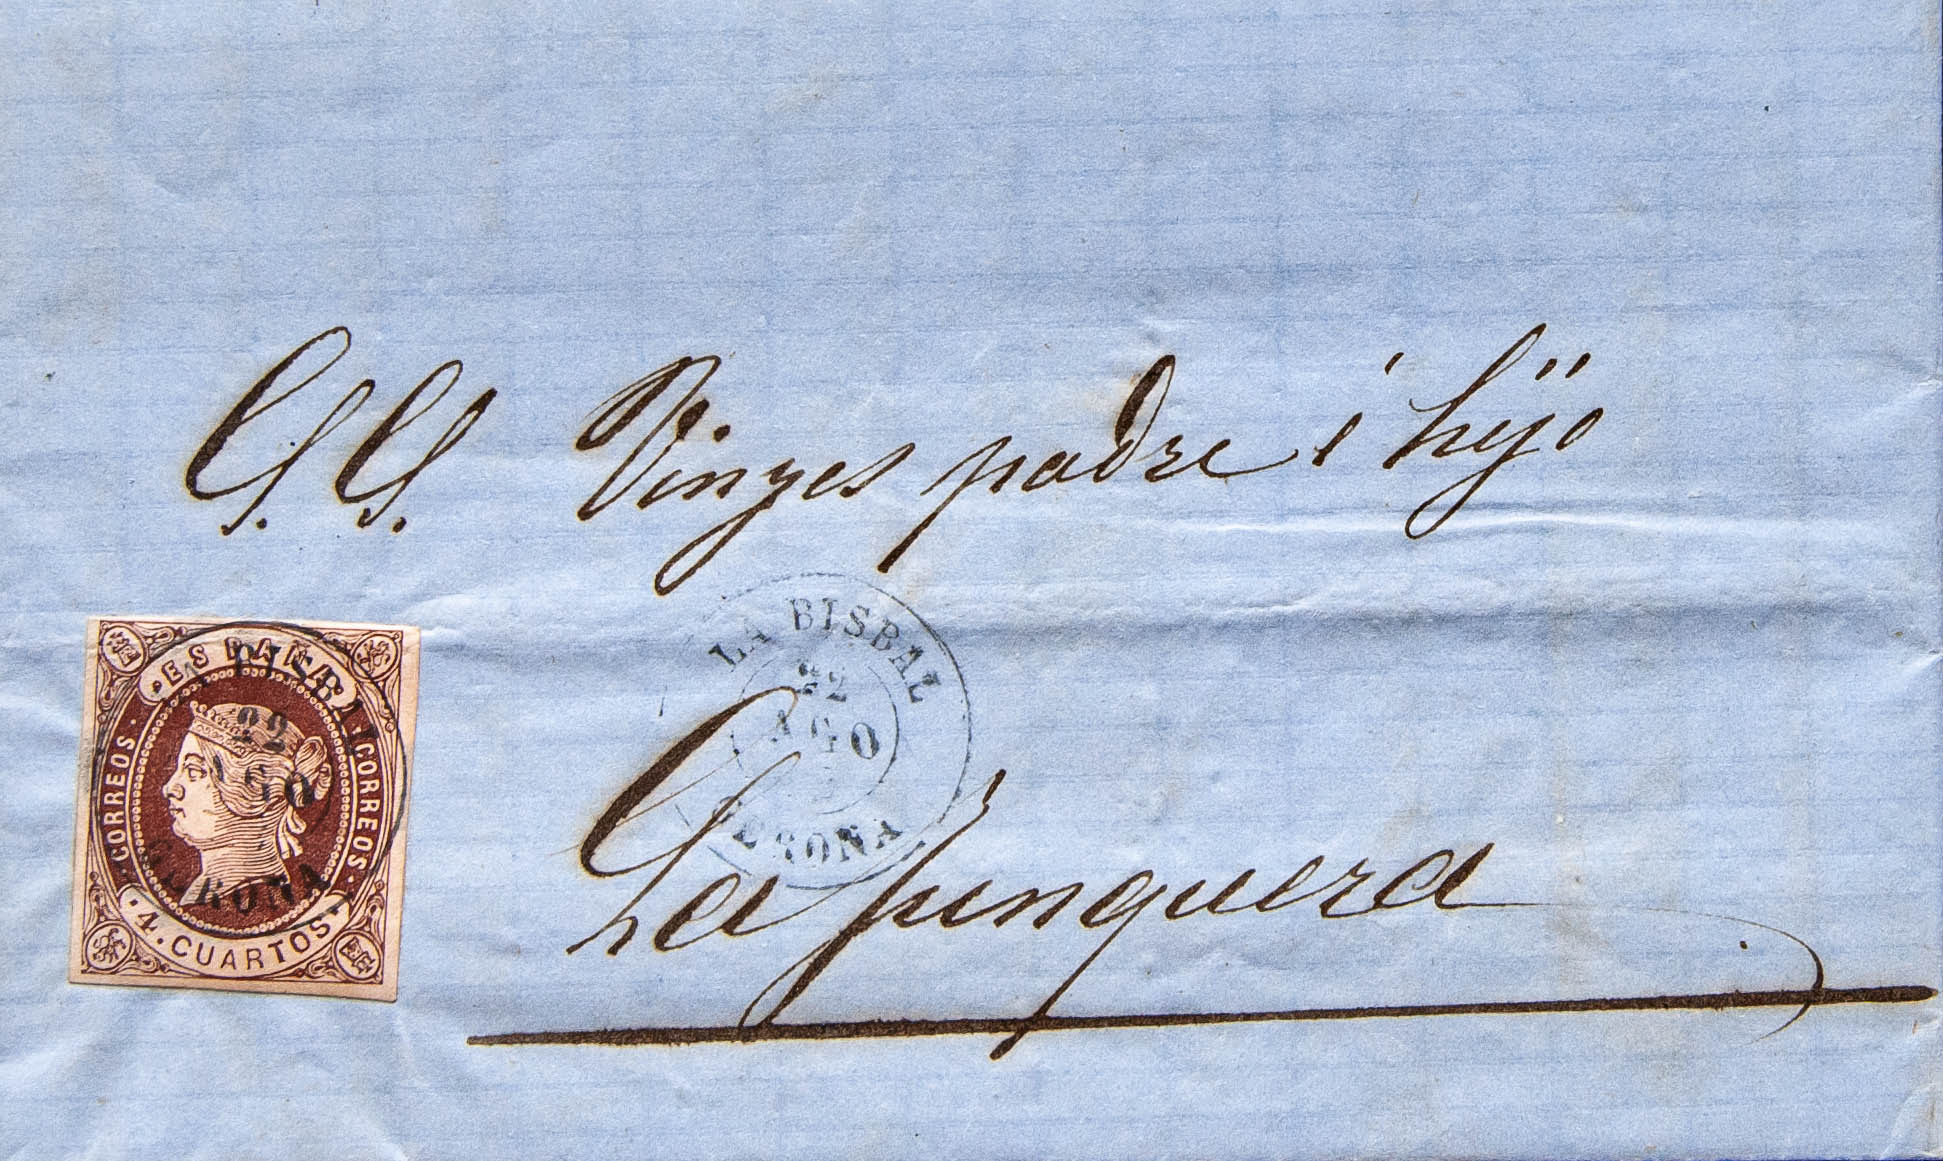 S.S. Vinyes padre é hijo
La Junquera
LA BISBAL
22
AGO
GERONA
ESPAÑA
CORREOS
CORREOS
4 CUARTOS
LA BISBAL
22
AGO
GERONA